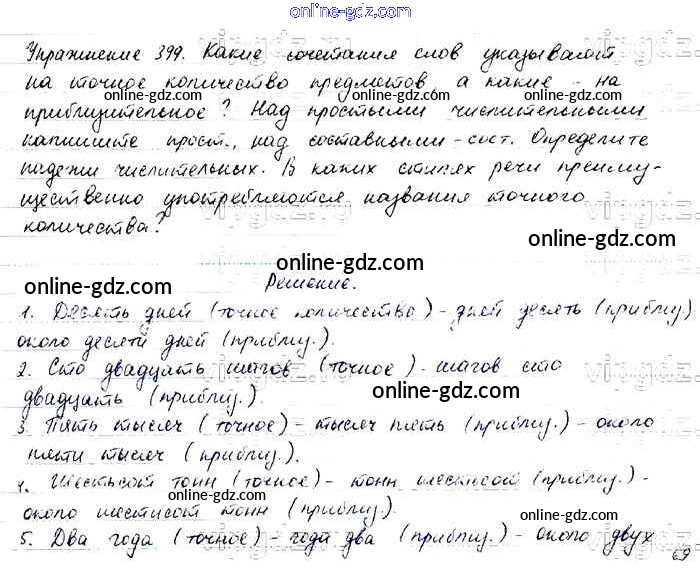 online-gdz.com
Упражнение 399. Какие сочетания слов указывают
на точное количество предметов а какие - на
приблизительное? Над простыми числительными
напишите прост., над составными - сост. Определите
падежи числительных. В каких стилях речи преиму-
щественно употребляются названия точного
количества?
Решение.
1. Десять дней (точное количество) - дней десять (приблиз.)
около десяти дней (приблиз.).
2. Сто двадцать шагов (точное) - шагов сто
двадцать (приблиз.).
3. Пять тысяч (точное) - тысяч пять (приблиз.) - около
пяти тысяч (приблиз.).
4. Шестьсот тонн (точное) - тонн шестьсот (приблиз.) -
около шестисот тонн (приблиз.).
5. Два года (точное) - года два (приблиз.) - около двух
69